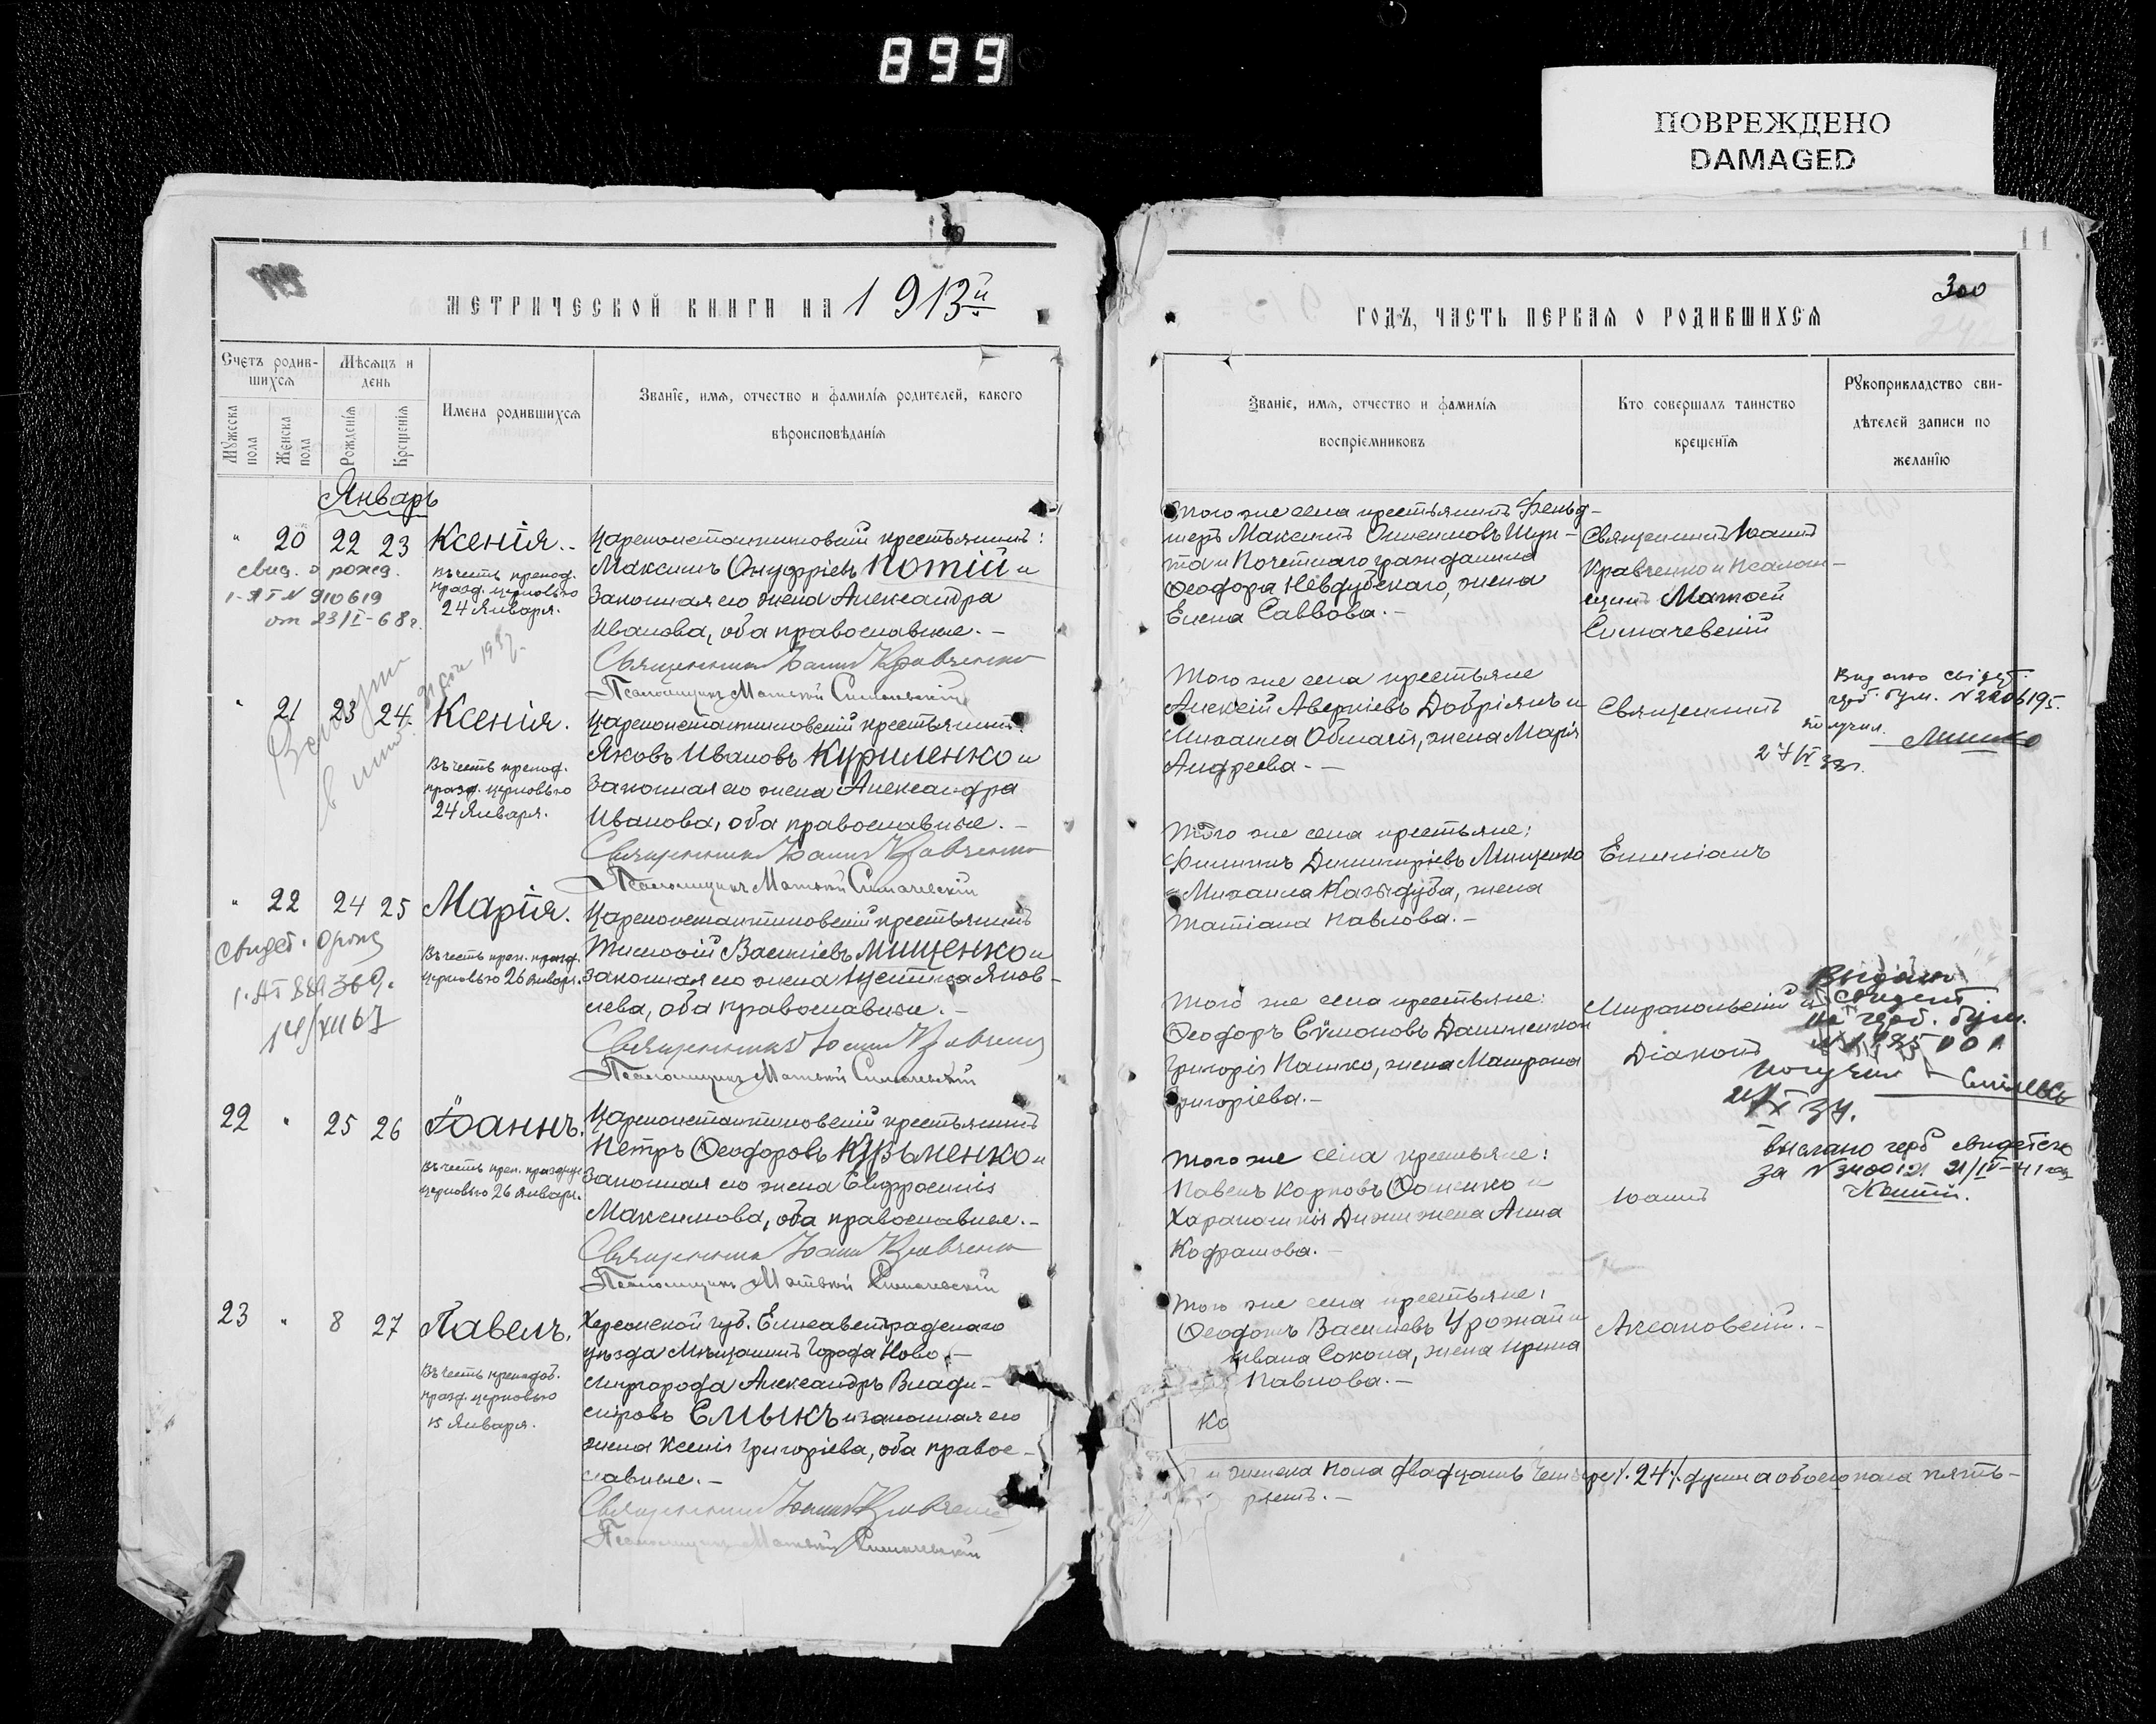 899
ПОВРЕЖДЕНО
DAMAGED
11
МЕТРИЧЕСКОЙ КНИГИ НА 1913й
Счетъ родив-
шихся
Мѣсяцъ и
день
Мужеска
пола
Женска
пола
Рожденія
Крещенія
Имена родившихся
Званіе, имя, отчество и фамилія родителей, какого
вѣроисповѣданія
Январь
" 20 22 23 Ксенія.
свид. о рожд.
I-ЯТ N 910619
от 23/I-68г.
Въ честь препод.
празд. церковью
24 Января.
Цареконстантиновскій крестьянинъ:
Максимъ Онуфріевъ Котій и
законная его жена Александра
Иванова, оба православные. –
Священникъ Іоаннъ Кравченко
Псаломщикъ Матвей Симачевскій
" 21 23 24. Ксенія.
Въ честь препод.
празд. церковью
24 Января.
Цареконстантиновскій крестьянинъ
Яковъ Ивановъ Куриленко и
законная его жена Александра
Иванова, оба православные. –
Священникъ Іоаннъ Кравченко
Псаломщикъ Матвей Симачевскій
" 22 24 25 Марія.
свидет. о рожд
14/XII 67
Въ честь преп. празд.
церковью 26 Января.
Цареконстантиновскій крестьянинъ
Тимофій Васильевъ Мищенко и
законная его жена Іустина Яков-
лева, оба православные. –
Священникъ Іоаннъ Кравченко
Псаломщикъ Матвей Симачевскій
22 " 25 26 Іоаннъ.
Въ честь преп. празднуе
церковью 26 Января.
Цареконстантиновскій крестьянинъ
Петръ Ѳеодоровъ Кузьменко и
законная его жена Евфросинія
Максимова, оба православные. –
Священникъ Іоаннъ Кравченко
Псаломщикъ Матвей Симачевскій
23 " 8 27 Павелъ.
Въ честь преподоб.
празд. церковью
15 Января.
Херсонской губ. Елисаветградскаго
уѣзда Мѣщанинъ города Ново-
миргорода Александръ Влади-
міровъ Смыкъ и законная его
жена Ксенія Григоріева, оба право-
славные. –
Священникъ Іоаннъ Кравченко
Псаломщикъ Матвей Симачевскій
300
ГОДЪ, ЧАСТЬ ПЕРВАЯ О РОДИВШИХСЯ
Званіе, имя, отчество и фамилія
воспріемниковъ
Кто совершалъ таинство
крещенія
Рукоприкладство сви-
дѣтелей записи по
желанію
Того же села крестьянинъ Фельд-
шеръ Максимъ
и Почетнаго гражданина
Ѳеодора Невдубскаго, жена
Елена Саввова. –
Священникъ Іоаннъ
Кравченко и Псалом-
щикъ Матвей
Симачевскій
Того же села крестьяне
Алексій Аверкіевъ Добріянъ и
Михаила жена Марія
Андреева. –
Священникъ
Видано свідут.
герб. бум. N 2206195.
получил.
27/IV 33г.
Того же села крестьяне:
Филиппъ Димитріевъ Мищенко
и Михаила Казидуба, жена
Татіана Павлова. –
Емиліанъ
Того же села крестьяне:
Ѳеодоръ Сѵмоновъ Даниленко и
Григорія Кашко, жена Матрона
Григоріева. –
Діаконъ
Видано
свидет.
на герб. бум.
Получил
Того же села крестьяне:
Павелъ Карповъ Ѳоменко и
Харалампія жена Анна
Іоаннъ
выслано герб свидетел
за N 3400121 21/IV-41 год
Того же села крестьяне:
Ѳеодотъ Васильевъ Урожай и
Ивана Сокола, жена Ирина
Павлова. –
Ко
и женска пола двадцать четыре /.24/. души а обоего пола пять-